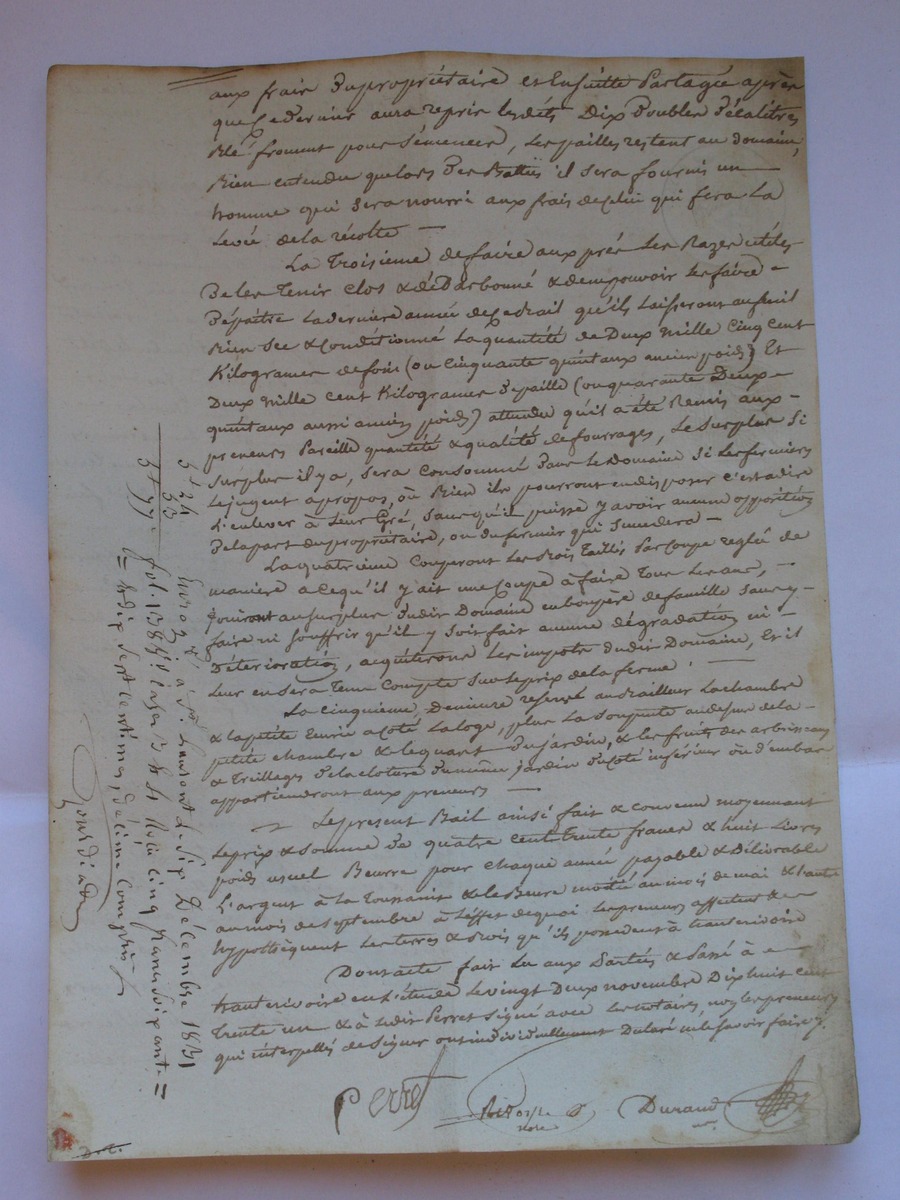 aux frais du propriétaire et Ensuitte Partagée après
que ce dernier aura repris lesdits Dix Doubles Décalitres
Blé froment pour Sémences, les pailles restent au domaine,
Bien entendu que lors des Battus il sera fourni un
homme qui sera nourri aux frais de celui qui fera la
Levée de la récolte —
La Troisieme de faire aux prés les Razes utiles
De les Tenir clos & &
Dépaitre la derniere année de ce Bail qu'ils laisseront au fenil
Bien Sec & Conditionné La quantité de Deux Mille Cinq Cent
Kilogrames de foin (ou cinquante quintaux ancien poids) Et
Deux Mille cent Kilogrames de paille (ou quarante Deux
quintaux aussi anciens poids) attendu qu'il a été Remis aux
preneurs Pareille quantité & qualité de fourrages, Le Surplus Si
Surplus il y a, sera Consommé dans Le Domaine Si les fermiers
Le jugent apropos, où Bien ils pourront en disposer c'est adire
L'enlever à Leur Gré, Sans qu'il puisse y avoir aucune opposition
De la part du propriétaire, ou du fermier qui Succedera —
La quatrieme Couperont les Bois Taillis Par Coupe reglée de
maniere a ce qu'il y ait une Coupe à faire Tous Les ans, —
jouiront au surplus dudit Domaine en bon père de famille Sans y
faire ni Souffrir qu'il y Soit fait aucune dégradation ni
Déterioration, acquiterons les impots dudit Domaine, Et il
Leur en Sera Tenu Compte Sur le prix de la ferme. —
La Cinquieme Demeure reservé au Bailleur La chambre
& la petite Ecurie a coté La loge, plus La Soupente au dessus de la
petite chambre & le quart du jardin, & les fruits des arbrisseaux
& Treillages de la cloture du même jardin du Coté inférieur où d'embas
appartiendront aux preneurs —
Le present Bail ainsi fait & convenu moyennant
Le prix & Somme de quatre Cent trente francs & huit Livres
poids usuel Beurre pour chaque année payable & Délivrable
L'argent à la Toussaint & le Beurre moitié au mois de mai & l'autre
au mois de septembre à l'effet dequoi les preneurs affectent &
hypothèquent Les terres & Bois qu'ils possedent à hauterivoire
Dont acte fait Lu aux Parties & Passé à
hauterivoire en L'étude Le vingt Deux novembre Dix huit cent
Trente un & à Ledit Perret Signé avec les notaires, non les preneurs
qui interpellés de Signer ont individuellement Declaré ne le Savoir faire.
Perret
Durand
Enrog. à St Laurent le Six Décembre 1831
fol. 138 Reçu cinq francs Soixante
Dix Sept Centimes, Décime Compris